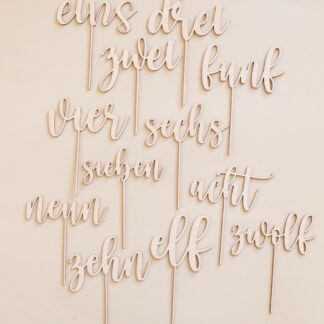 eins drei
zwei fünf
vier sechs
sieben acht
neun
zehn elf zwölf